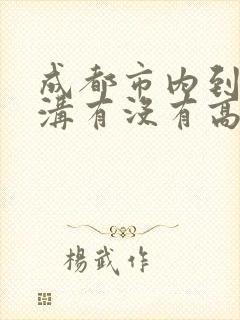 成都市内到
溝有沒有高
楊武作